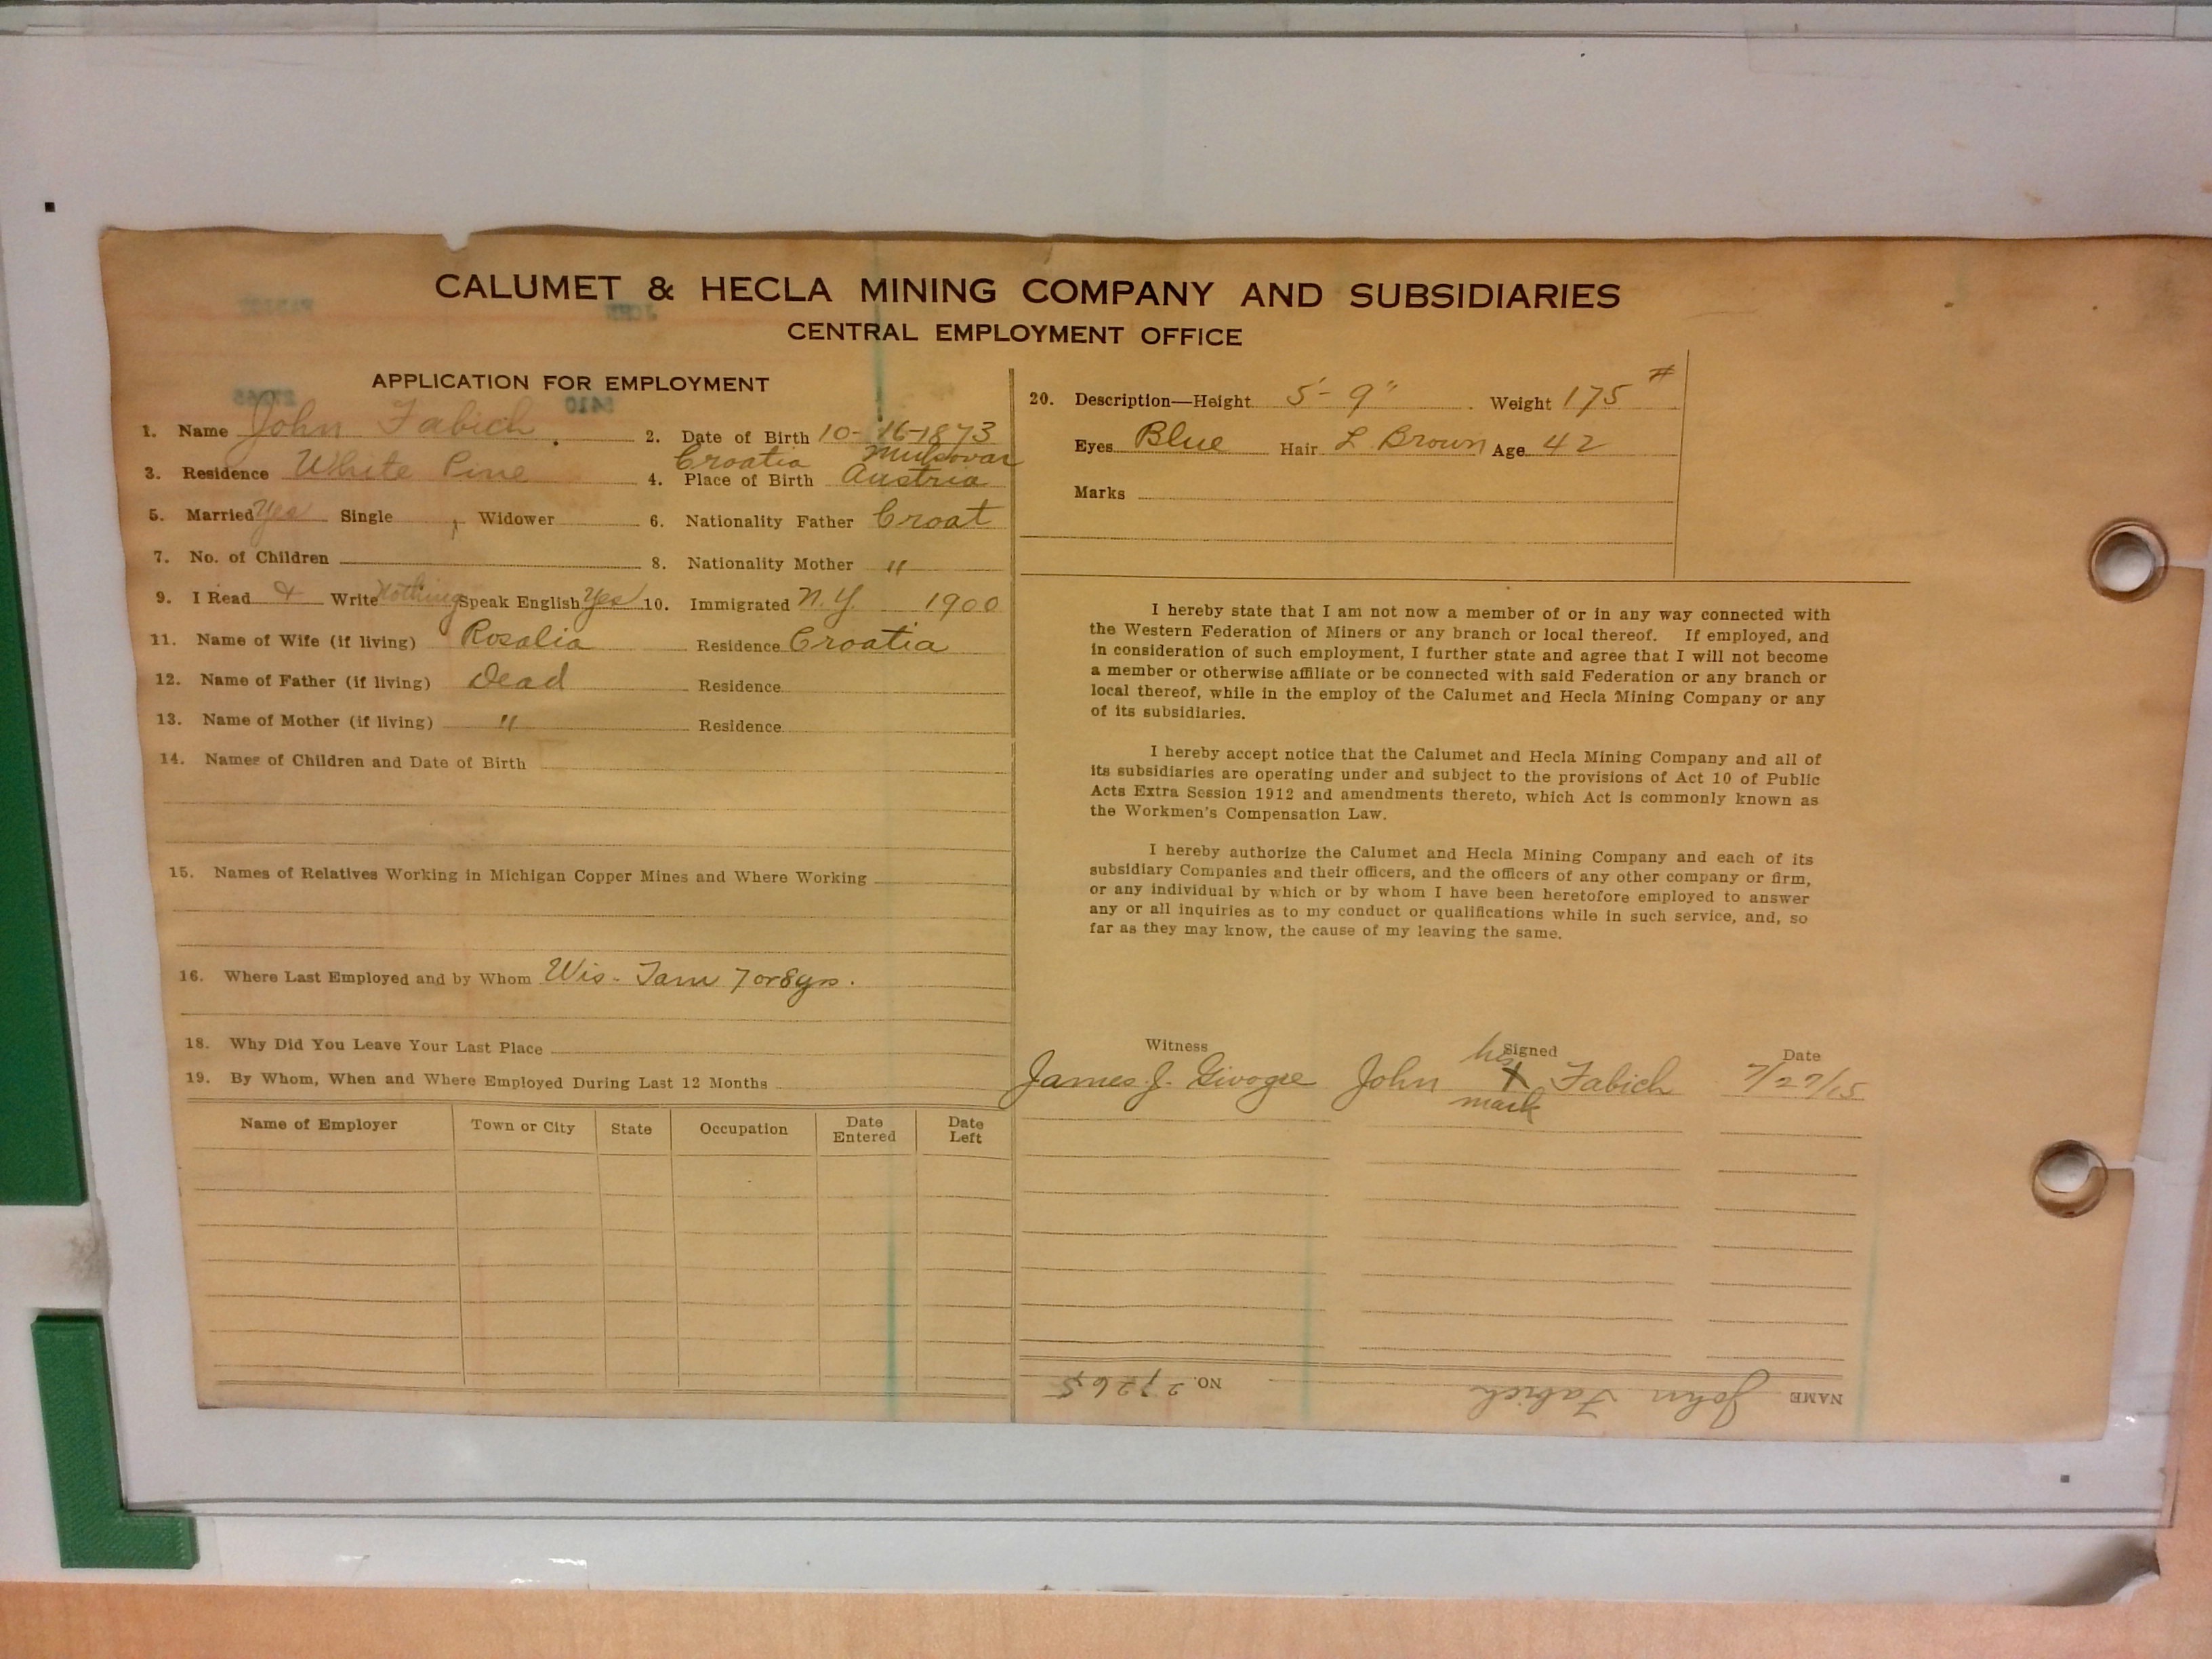 CALUMET & HECLA MINING COMPANY AND SUBSIDIARIES
CENTRAL EMPLOYMENT OFFICE
APPLICATION FOR EMPLOYMENT
1. Name John Fabich 2. Date of Birth 10-16-1873
Croatia
3. Residence White Pine 4. Place of Birth Austria
5. Married Yes Single , Widower 6. Nationality Father Croat
7. No. of Children 8. Nationality Mother "
9. I Read & Write Nothing Speak English Yes 10. Immigrated N.Y. 1900
11. Name of Wife (if living) Rosalia Residence Croatia
12. Name of Father (if living) Dead Residence
13. Name of Mother (if living) " Residence
14. Names of Children and Date of Birth
15. Names of Relatives Working in Michigan Copper Mines and Where Working
16. Where Last Employed and by Whom Wis- 7 or 8 yrs.
18. Why Did You Leave Your Last Place
19. By Whom, When and Where Employed During Last 12 Months
Name of Employer Town or City State Occupation Date Entered Date Left
20. Description—Height 5'-9" Weight 175 #
Eyes Blue Hair L Brown Age 42
Marks
I hereby state that I am not now a member of or in any way connected with
the Western Federation of Miners or any branch or local thereof. If employed, and
in consideration of such employment, I further state and agree that I will not become
a member or otherwise affiliate or be connected with said Federation or any branch or
local thereof, while in the employ of the Calumet and Hecla Mining Company or any
of its subsidiaries.
I hereby accept notice that the Calumet and Hecla Mining Company and all of
its subsidiaries are operating under and subject to the provisions of Act 10 of Public
Acts Extra Session 1912 and amendments thereto, which Act is commonly known as
the Workmen's Compensation Law.
I hereby authorize the Calumet and Hecla Mining Company and each of its
subsidiary Companies and their officers, and the officers of any other company or firm,
or any individual by which or by whom I have been heretofore employed to answer
any or all inquiries as to my conduct or qualifications while in such service, and, so
far as they may know, the cause of my leaving the same.
Witness Signed Date
James J. John his X mark Fabich 7/27/15
NAME John Fabich NO. 27265